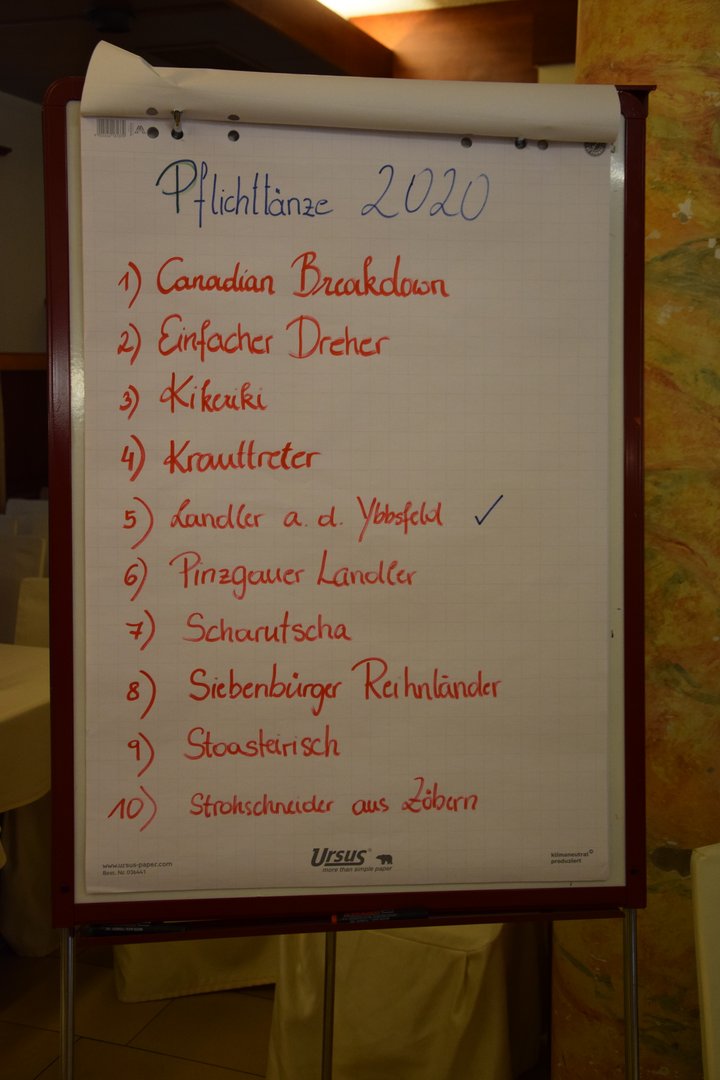 Pflichttänze 2020
1) Canadian Breakdown
2) Einfacher Dreher
3) Kikeriki
4) Krauttreter
5) Landler a. d. Ybbsfeld ✓
6) Pinzgauer Landler
7) Scharutscha
8) Siebenbürger Reihnländer
9) Stoasteirisch
10) Strohschneider aus Zöbern
www.ursus-paper.com
Best. Nr. 036441
Ursus®
more than simple paper
klimaneutral©
produziert